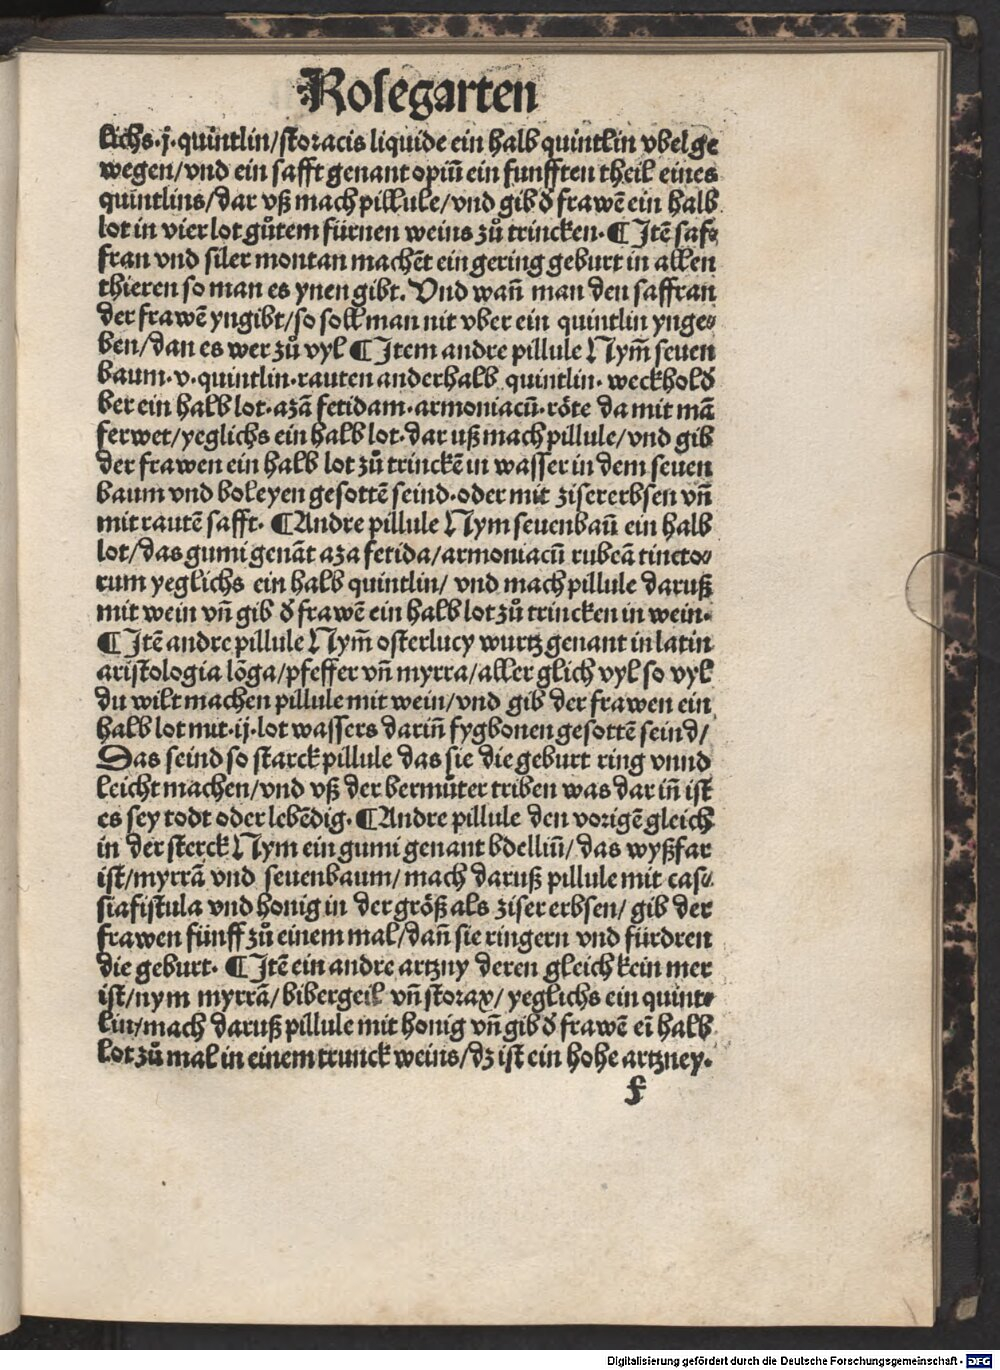 Rosegarten
lichs·j·quintlin/storacis liquide ein halb quintlin vbel ge
wegen/vnd ein safft genant opiū ein funfften theil eines
quintlins/dar vß mach pillule/vnd gib d̓ frawē ein halb
lot in vier lot gůtem fürnen weins zů trincken· ¶ Itē saf⸗
fran vnd siler montan machēt ein gering geburt in allen
thieren so man es ynen gibt. Vnd wañ man den saffran
der frawē yngibt/so soll man nit vber ein quintlin ynge⸗
ben/dan es wer zů vyl ¶ Item andre pillule Nym̄ seuen
baum·v·quintlin·rauten anderhalb quintlin· weckhold̓
ber ein halb lot·azā fetidam·armoniacū·röte da mit mā
ferwet/yeglichs ein halb lot·dar uß mach pillule/vnd gib
der frawen ein halb lot zů trinckē in wasser in dem seuen
baum vnd boleyen gesottē seind·oder mit zisererbsen vñ
mit rautē safft· ¶ Andre pillule Nym seuenbaū ein halb
lot/das gumi genāt aza fetida/armoniacū rubeā tincto⸗
rum yeglichs ein halb quintlin/ vnd mach pillule daruß
mit wein vñ gib d̓ frawē ein halb lot zů trincken in wein·
¶ Itē andre pillule Nym̄ osterlucy wurtz genant in latin
aristologia lōga/pfeffer vñ myrra/aller glich vyl so vyl
du wilt machen pillule mit wein/vnd gib der frawen ein
halb lot mit·ij·lot wassers dariñ fygbonen gesottē seind/
Das seind so starck pillule das sie die geburt ring vnnd
leicht machen/vnd vß der bermůter triben was dar iñ ist
es sey todt oder lebēdig· ¶ Andre pillule den vorigē gleich
in der sterck Nym ein gumi genant bdelliū/das wyßfar
ist/myrrā vnd seuenbaum/mach daruß pillule mit cas⸗
siafistula vnd honig in der größ als ziser erbsen/ gib der
frawen fünff zů einem mal/dañ sie ringern vnd fürdren
die geburt· ¶ Itē ein andre artzny deren gleich kein mer
ist/nym myrrā/bibergeil vñ storax/yeglichs ein quint⸗
lin/mach daruß pillule mit honig vñ gib d̓ frawē eī halb
lot zů mal in einem trunck weins/dz ist ein hohe artzney·
f
Digitalisierung gefördert durch die Deutsche Forschungsgemeinschaft - DFG